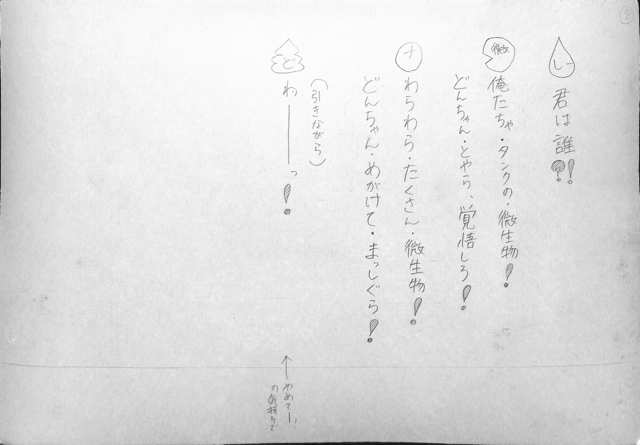 し
君は誰?!
微
俺たちゃ・タンクの・微生物!
どんちゃん・とやら、覚悟しろ!
ナ
わらわら・たくさん・微生物!
どんちゃん・めがけて・まっしぐら!
(引きながら)
ど
わーーっ!
↑やめてー!
の気持ちで